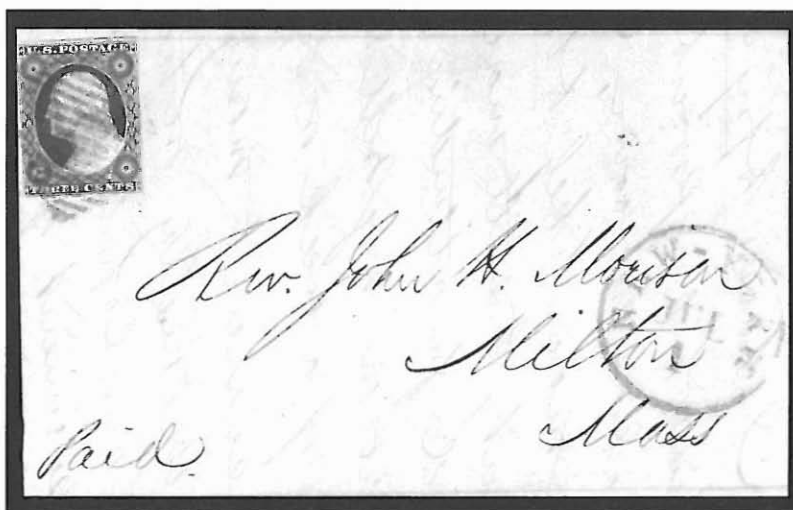 U.S. POSTAGE
THREE CENTS
Rev. John H. Morison
Milton
Mass
Paid.
NEW-YORK
JUL